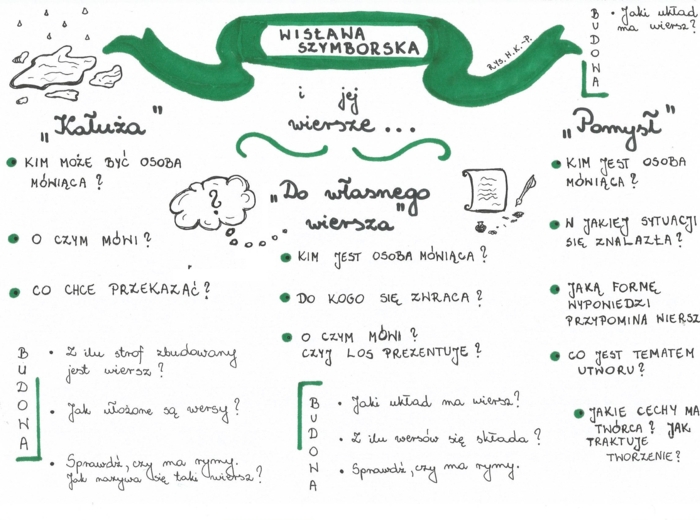 WISŁAWA
SZYMBORSKA
RYS. H. K.-P.
i jej
wiersze...
„Kałuża"
KIM MOŻE BYĆ OSOBA
MÓWIĄCA?
O CZYM MÓWI?
CO CHCE PRZEKAZAĆ?
BUDOWA
• Z ilu strof zbudowany
jest wiersz?
• Jak ułożone są wersy?
• Sprawdź, czy ma rymy.
Jak nazywa się taki wiersz?
?
„Do własnego
wiersza"
KIM JEST OSOBA MÓWIĄCA?
DO KOGO SIĘ ZWRACA?
O CZYM MÓWI?
CZYJ LOS PREZENTUJE?
BUDOWA
• Jaki układ ma wiersz?
• Z ilu wersów się składa?
• Sprawdź, czy ma rymy.
BUDOWA
• Jaki układ
ma wiersz?
„Pomysł"
KIM JEST OSOBA
MÓWIĄCA?
W JAKIEJ SYTUACJI
SIĘ ZNALAZŁA?
JAKĄ FORMĘ
WYPOWIEDZI
PRZYPOMINA WIERSZ
CO JEST TEMATEM
UTWORU?
JAKIE CECHY MA
TWÓRCA? JAK
TRAKTUJE
TWORZENIE?